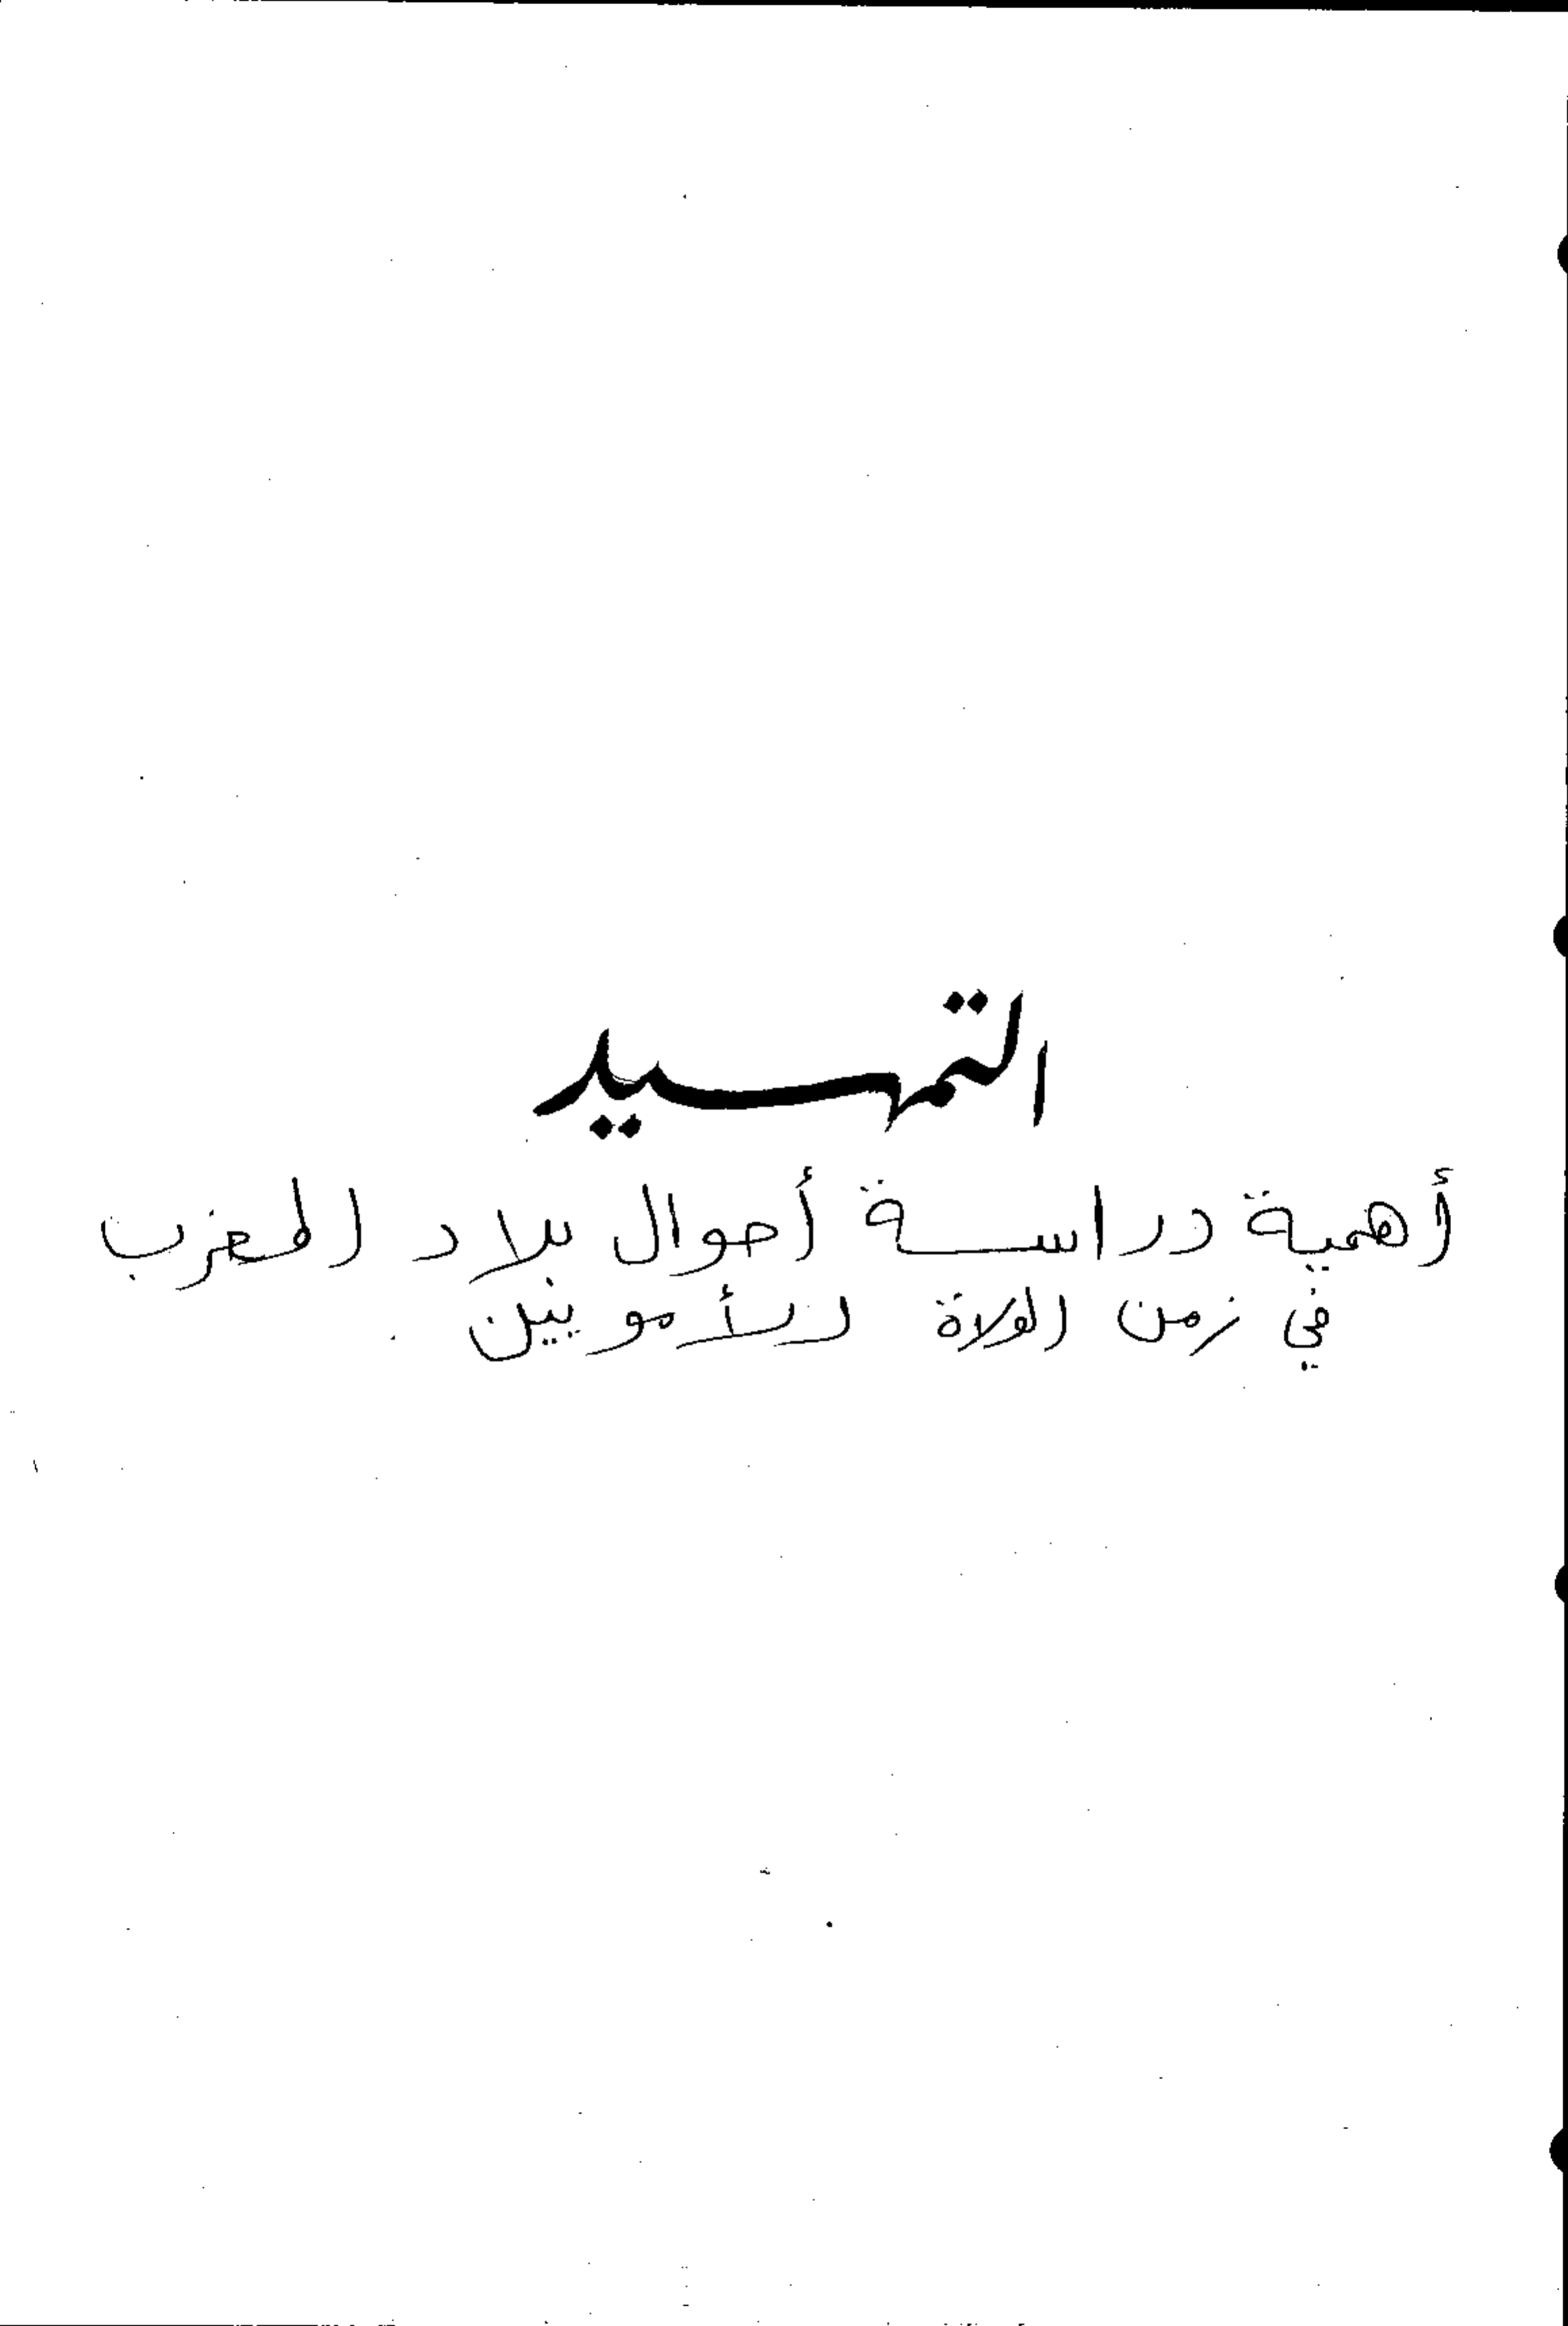 التمهيد
أهمية دراسة أحوال بلاد المغرب
في زمن الولاة الأمويين .